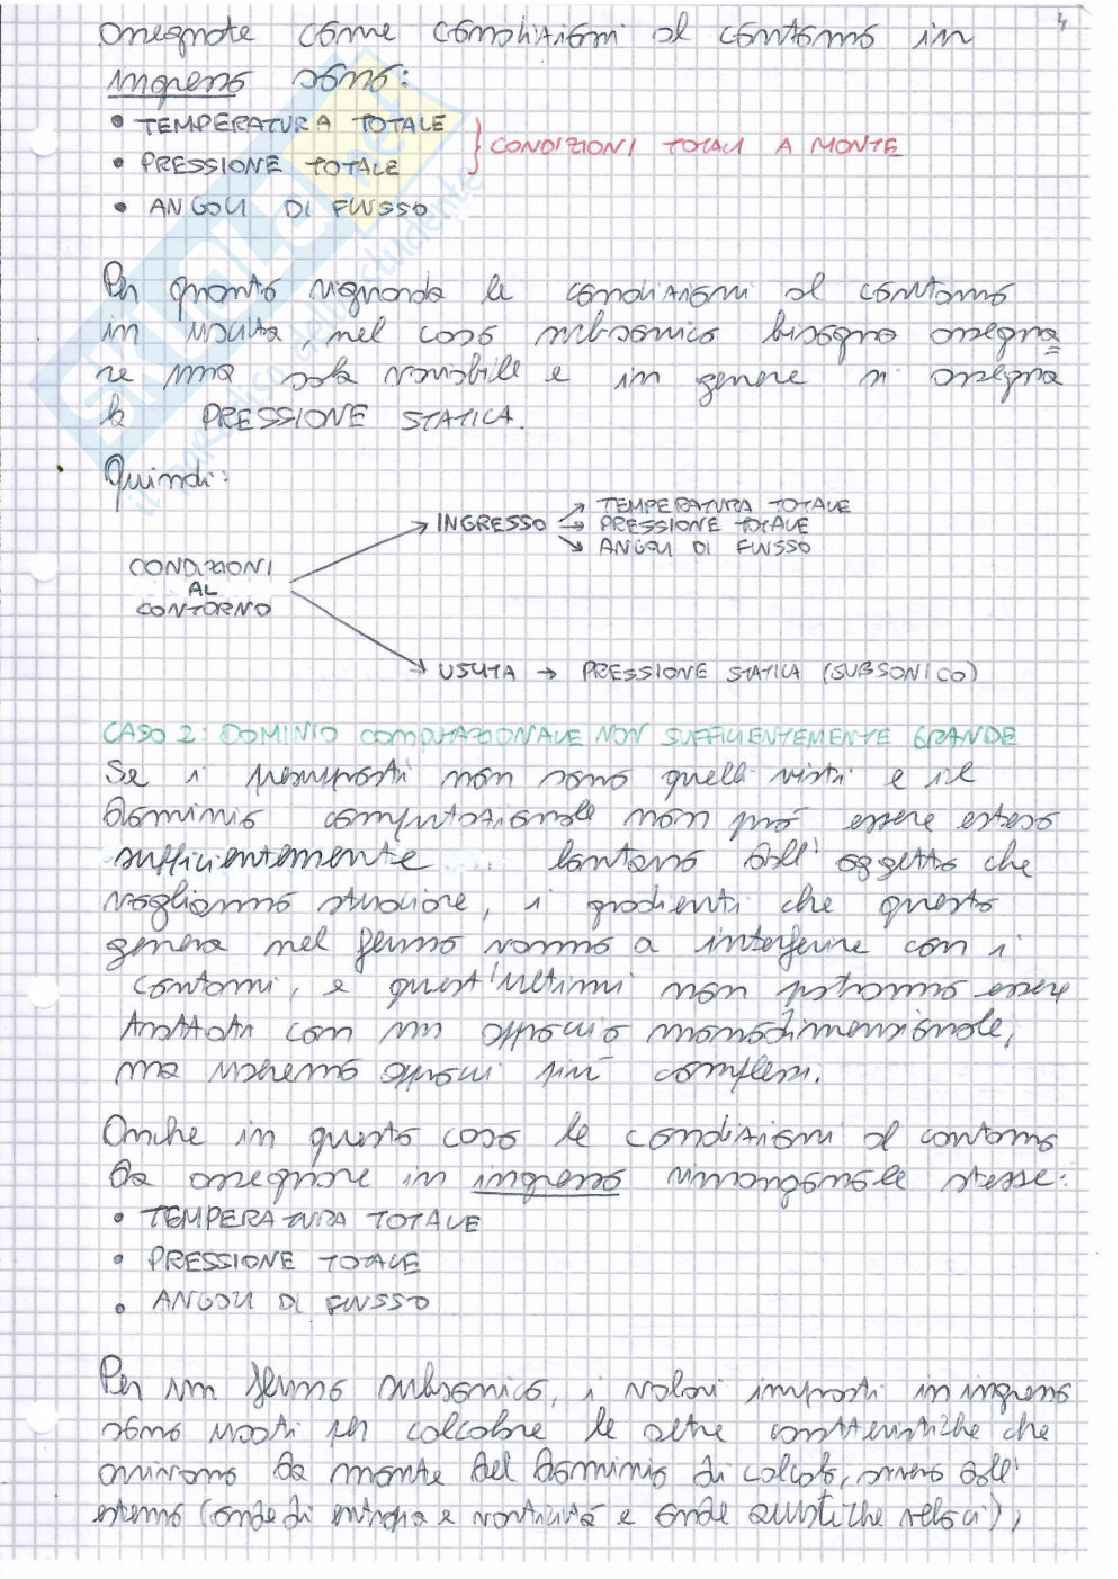 4
assegnate come condizioni al contorno in
ingresso sono:
• TEMPERATURA TOTALE
• PRESSIONE TOTALE
} CONDIZIONI TOTALI A MONTE
• ANGOLI DI FLUSSO
Per quanto riguarda le condizioni al contorno
in uscita, nel caso subsonico bisogna assegna=
re una sola variabile e in genere si assegna
la PRESSIONE STATICA.
Quindi:
CONDIZIONI
AL
CONTORNO
→ INGRESSO
→ TEMPERATURA TOTALE
→ PRESSIONE TOTALE
→ ANGOLI DI FLUSSO
→ USCITA → PRESSIONE STATICA (SUBSONICO)
CASO 2: DOMINIO COMPUTAZIONALE NON SUFFICIENTEMENTE GRANDE
Se i presupposti non sono quelli visti e il
dominio computazionale non può essere esteso
sufficientemente lontano dall'oggetto che
vogliamo studiare, i gradienti che questo
genera nel flusso vanno a interferire con i
contorni, e quest'ultimi non potranno essere
trattati con un approccio monodimensionale,
ma useremo approcci più complessi.
Anche in questo caso le condizioni al contorno
da assegnare in ingresso rimangono le stesse:
• TEMPERATURA TOTALE
• PRESSIONE TOTALE
• ANGOLI DI FLUSSO
Per un flusso subsonico, i valori imposti in ingresso
sono usati per calcolare le altre caratteristiche che
arrivano da monte del dominio di calcolo, ovvero dall'
esterno (onde di entropia e vorticità e onde acustiche veloci),
SKUOLA.net
il paradiso dello studente